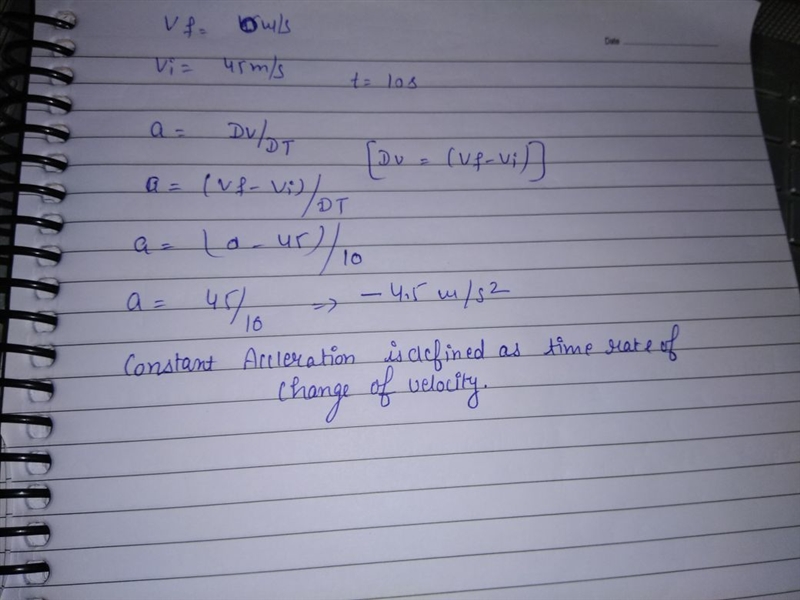 Vf = 0 m/s
Date
Vi = 45 m/s t = 10 s
a = DV/DT [DV = (Vf - Vi)]
a = (Vf - Vi)/DT
a = (0 - 45)/10
a = 45/10 => - 4.5 m/s2
Constant Accleration is defined as time rate of
change of velocity.